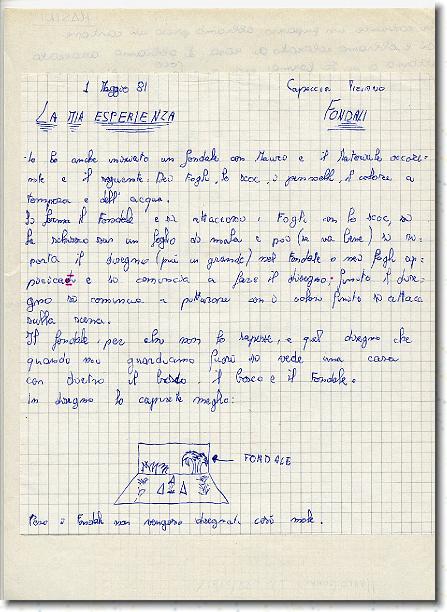 1 Maggio 81 Capuccia Tiziana
LA MIA ESPERIENZA FONDALI
Io ho anche iniziato un fondale con Mauro e il Materiale occorre-
nte e il seguente. Dei Fogli, lo scoc, i pennelli, il colore a
Tempera e dell'acqua.
Si forma il Fondale e si attaccono i Fogli con lo scoc, si
fa su un foglio di e poi (se va bene) si ri-
porta il disegno (più in grande) nel Fondale o nei fogli ap-
piccicati e si comincia a fare il disegno; finito il dise-
gno si comincia a pitturare con i colori finito si attacca
sulla scena.
Il fondale, per chi non lo sapesse, è quel disegno che
quando noi guardiamo fuori si vede una casa
con dietro il bosco. Il bosco è il Fondale.
In disegno lo capirete meglio:
FONDALE
Pero i Fondali non vengono disegnati così male.